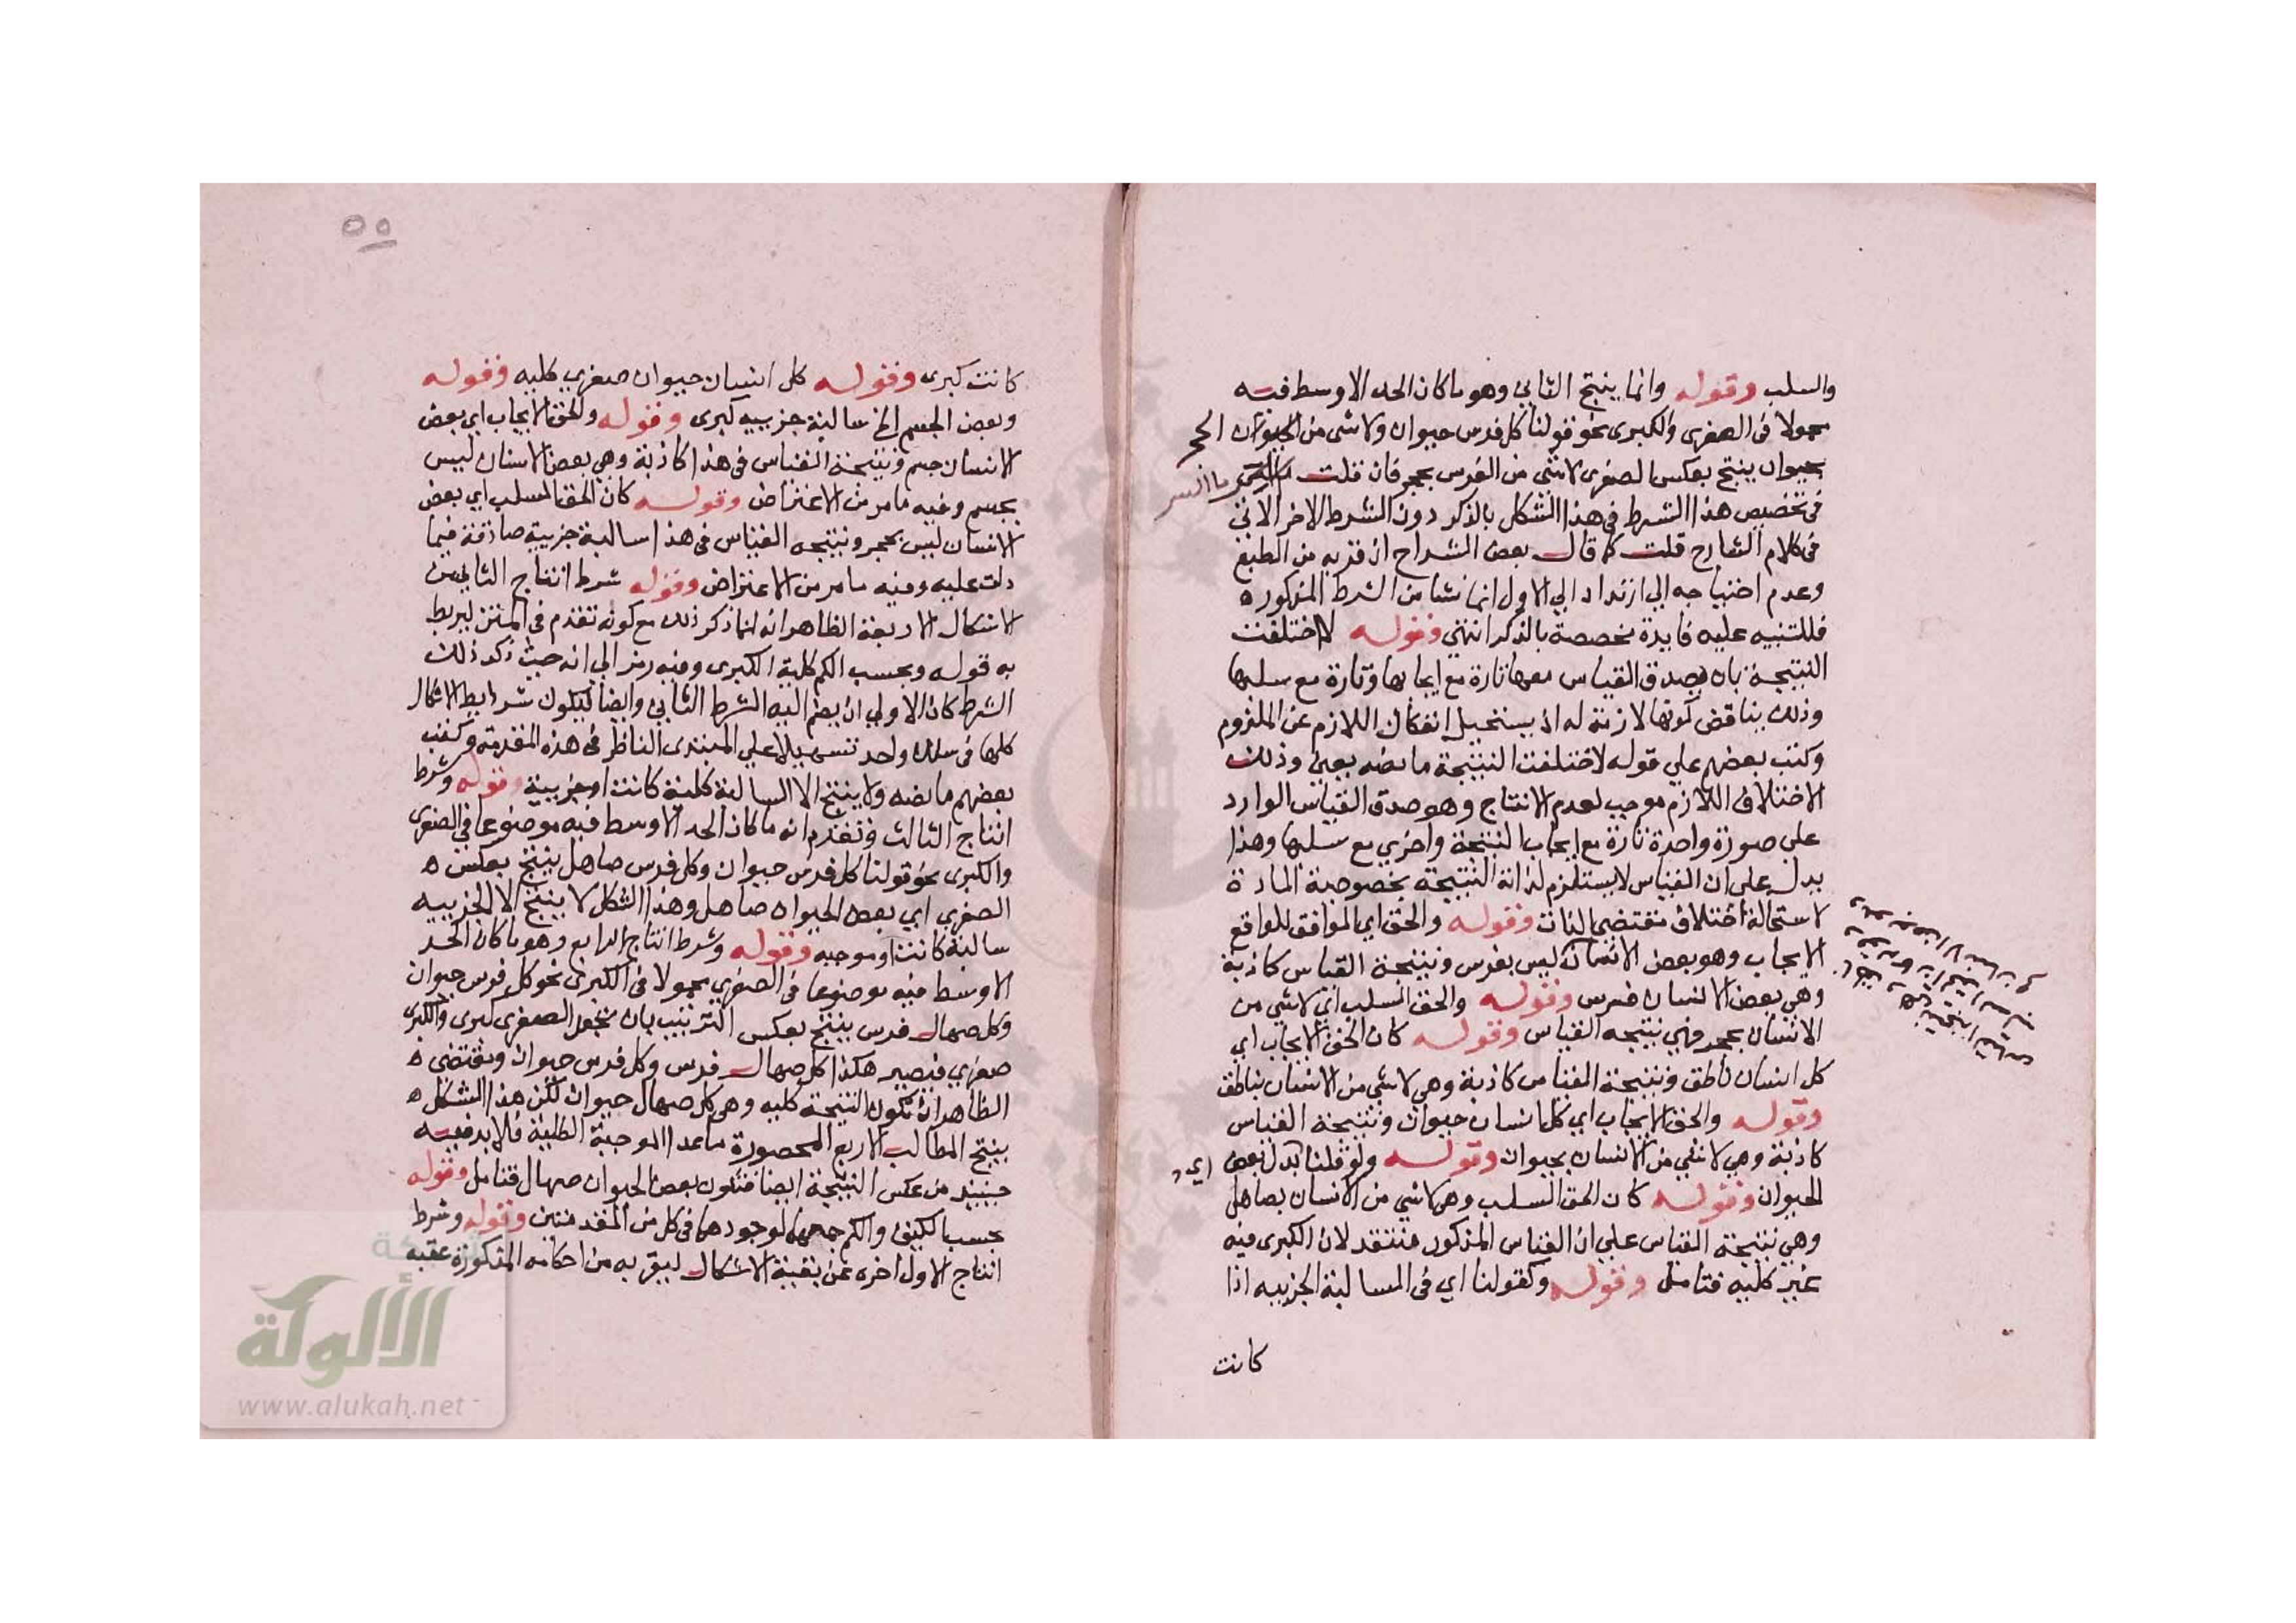 والسلب وقوله وانما ينتج الثاني وهو ما كان الحد الاوسط فيه
محمولا في الصغرى والكبرى نحو قولنا كل فرس حيوان ولا شي من الحجر
بحيوان ينتج بعكس الصغرى لا شي من الفرس بحجر فان قلت ما السر
في تخصيص هذا الشرط في هذا الشكل بالذكر دون الشرط الاخر الاتي
في كلام الشارح قلت كما قال بعض الشراح ان قربه من الطبع
وعدم احتياجه الي ارتداد الي الاول انما نشا من الشرط المذكور ه
فللتنبيه عليه فايدة مخصصة بالذكر انتهي وقوله لاختلفت
النتيجة بان يصدق القياس معها تارة مع ايجابها وتارة مع سلبها
وذلك يناقض كونها لازمة له اذ يستحيل انفكاك اللازم عن الملزوم
وكتب بعضهم علي قوله لاختلفت النتيجة ما نصه يعني وذلك
الاختلاف اللازم موجب لعدم الانتاج وهو صدق القياس الوارد
علي صورة واحدة تارة مع ايجاب النتيجة واخري مع سلبها وهذا
يدل علي ان القياس لا يستلزم لذاته النتيجة بخصوصية المادة
لاستحالة اختلاف مقتضي الذات وقوله والحق اي الموافق للواقع
الايجاب وهو بعض الانسان ليس بفرس ونتيجة القياس كاذبة
وهي بعض الانسان فرس وقوله والحق السلب اي لا شي من
الانسان بحجر فهي نتيجه القياس وقوله كان الحق الايجاب اي
كل انسان ناطق ونتيجة القياس كاذبة وهي لا شي من الانسان بناطق
وقوله والحق الايجاب اي كل انسان حيوان ونتيجة القياس
كاذبة وهي لا شي من الانسان بحيوان وقوله ولو قلنا بدل بعض اي
الحيوان وقوله كان الحق السلب وهي لا شي من الانسان بصاهل
وهي نتيجة القياس علي ان القياس المذكور منتقد لان الكبرى فيه
غير كليه فتامل وقوله وكقولنا اي في السالبة الجزييه اذا
كانت
٥٥
كانت كبرى وقوله كل انسان حيوان صغري كليه وقوله
وبعض الجسم الخ سالبة جزييه كبرى وقوله والحق الايجاب اي بعض
الانسان جسم ونتيجة القياس في هذا كاذبة وهي بعض الانسان ليس
بجسم وفيه ما مر من الاعتراض وقوله كان الحق السلب اي بعض
الانسان ليس بحجر ونتيجه القياس في هذا سالبة جزيية صادقة فيما
دلت عليه وفيه ما مر من الاعتراض وقوله شرط انتاج الثاني من
الاشكال الاربعة الظاهر انه انما ذكر ذلك مع كونه تقدم في المتن ليربط
به قوله وبحسب الكم كلية الكبرى وفيه رمز الي انه حيث ذكر ذلك
الشرط كان الاولي ان يضم اليه الشرط الثاني وايضا ليكون شرايط الاشكال
كلها في سلك واحد تسهيلا علي المبتدى الناظر في هذه المقدمة وكتب
بعضهم ما نصه ولا ينتج الا السالبة كلية كانت او جزيية وقوله وشرط
انتاج الثالث وتقدم انه ما كان الحد الاوسط فيه موضوعا في الصغرى
والكبرى نحو قولنا كل فرس حيوان وكل فرس صاهل ينتج بعكس ه
الصغري اي بعض الحيوان صاهل وهذا الشكل لا ينتج الا الجزييه
سالبة كانت او موجبه وقوله وشرط انتاج الرابع وهو ما كان الحد
الاوسط فيه موضوعا في الصغري محمولا في الكبرى نحو كل فرس حيوان
وكل صهال فرس ينتج بعكس الترتيب بان تجعل الصغرى كبرى والكبرى
صغري فيصير هكذا كل صهال فرس وكل فرس حيوان ومقتضى ه
الظاهر ان تكون النتيجة كليه وهي كل صهال حيوان لكن هذا الشكل ه
ينتج المطالب الاربع المحصورة ما عدا الموجبة الكلية فلا بد فيه
حينيذ من عكس النتيجة ايضا فتكون بعض الحيوان صهال فتامل وقوله
بحسب الكيف والكم جمعهما لوجودهما في كل من المقدمتين وقوله وشرط
انتاج الاول اخره عن بقية الاشكال ليقربه من احكامه المذكورة عقبه
شبكة
الألوكة
www.alukah.net